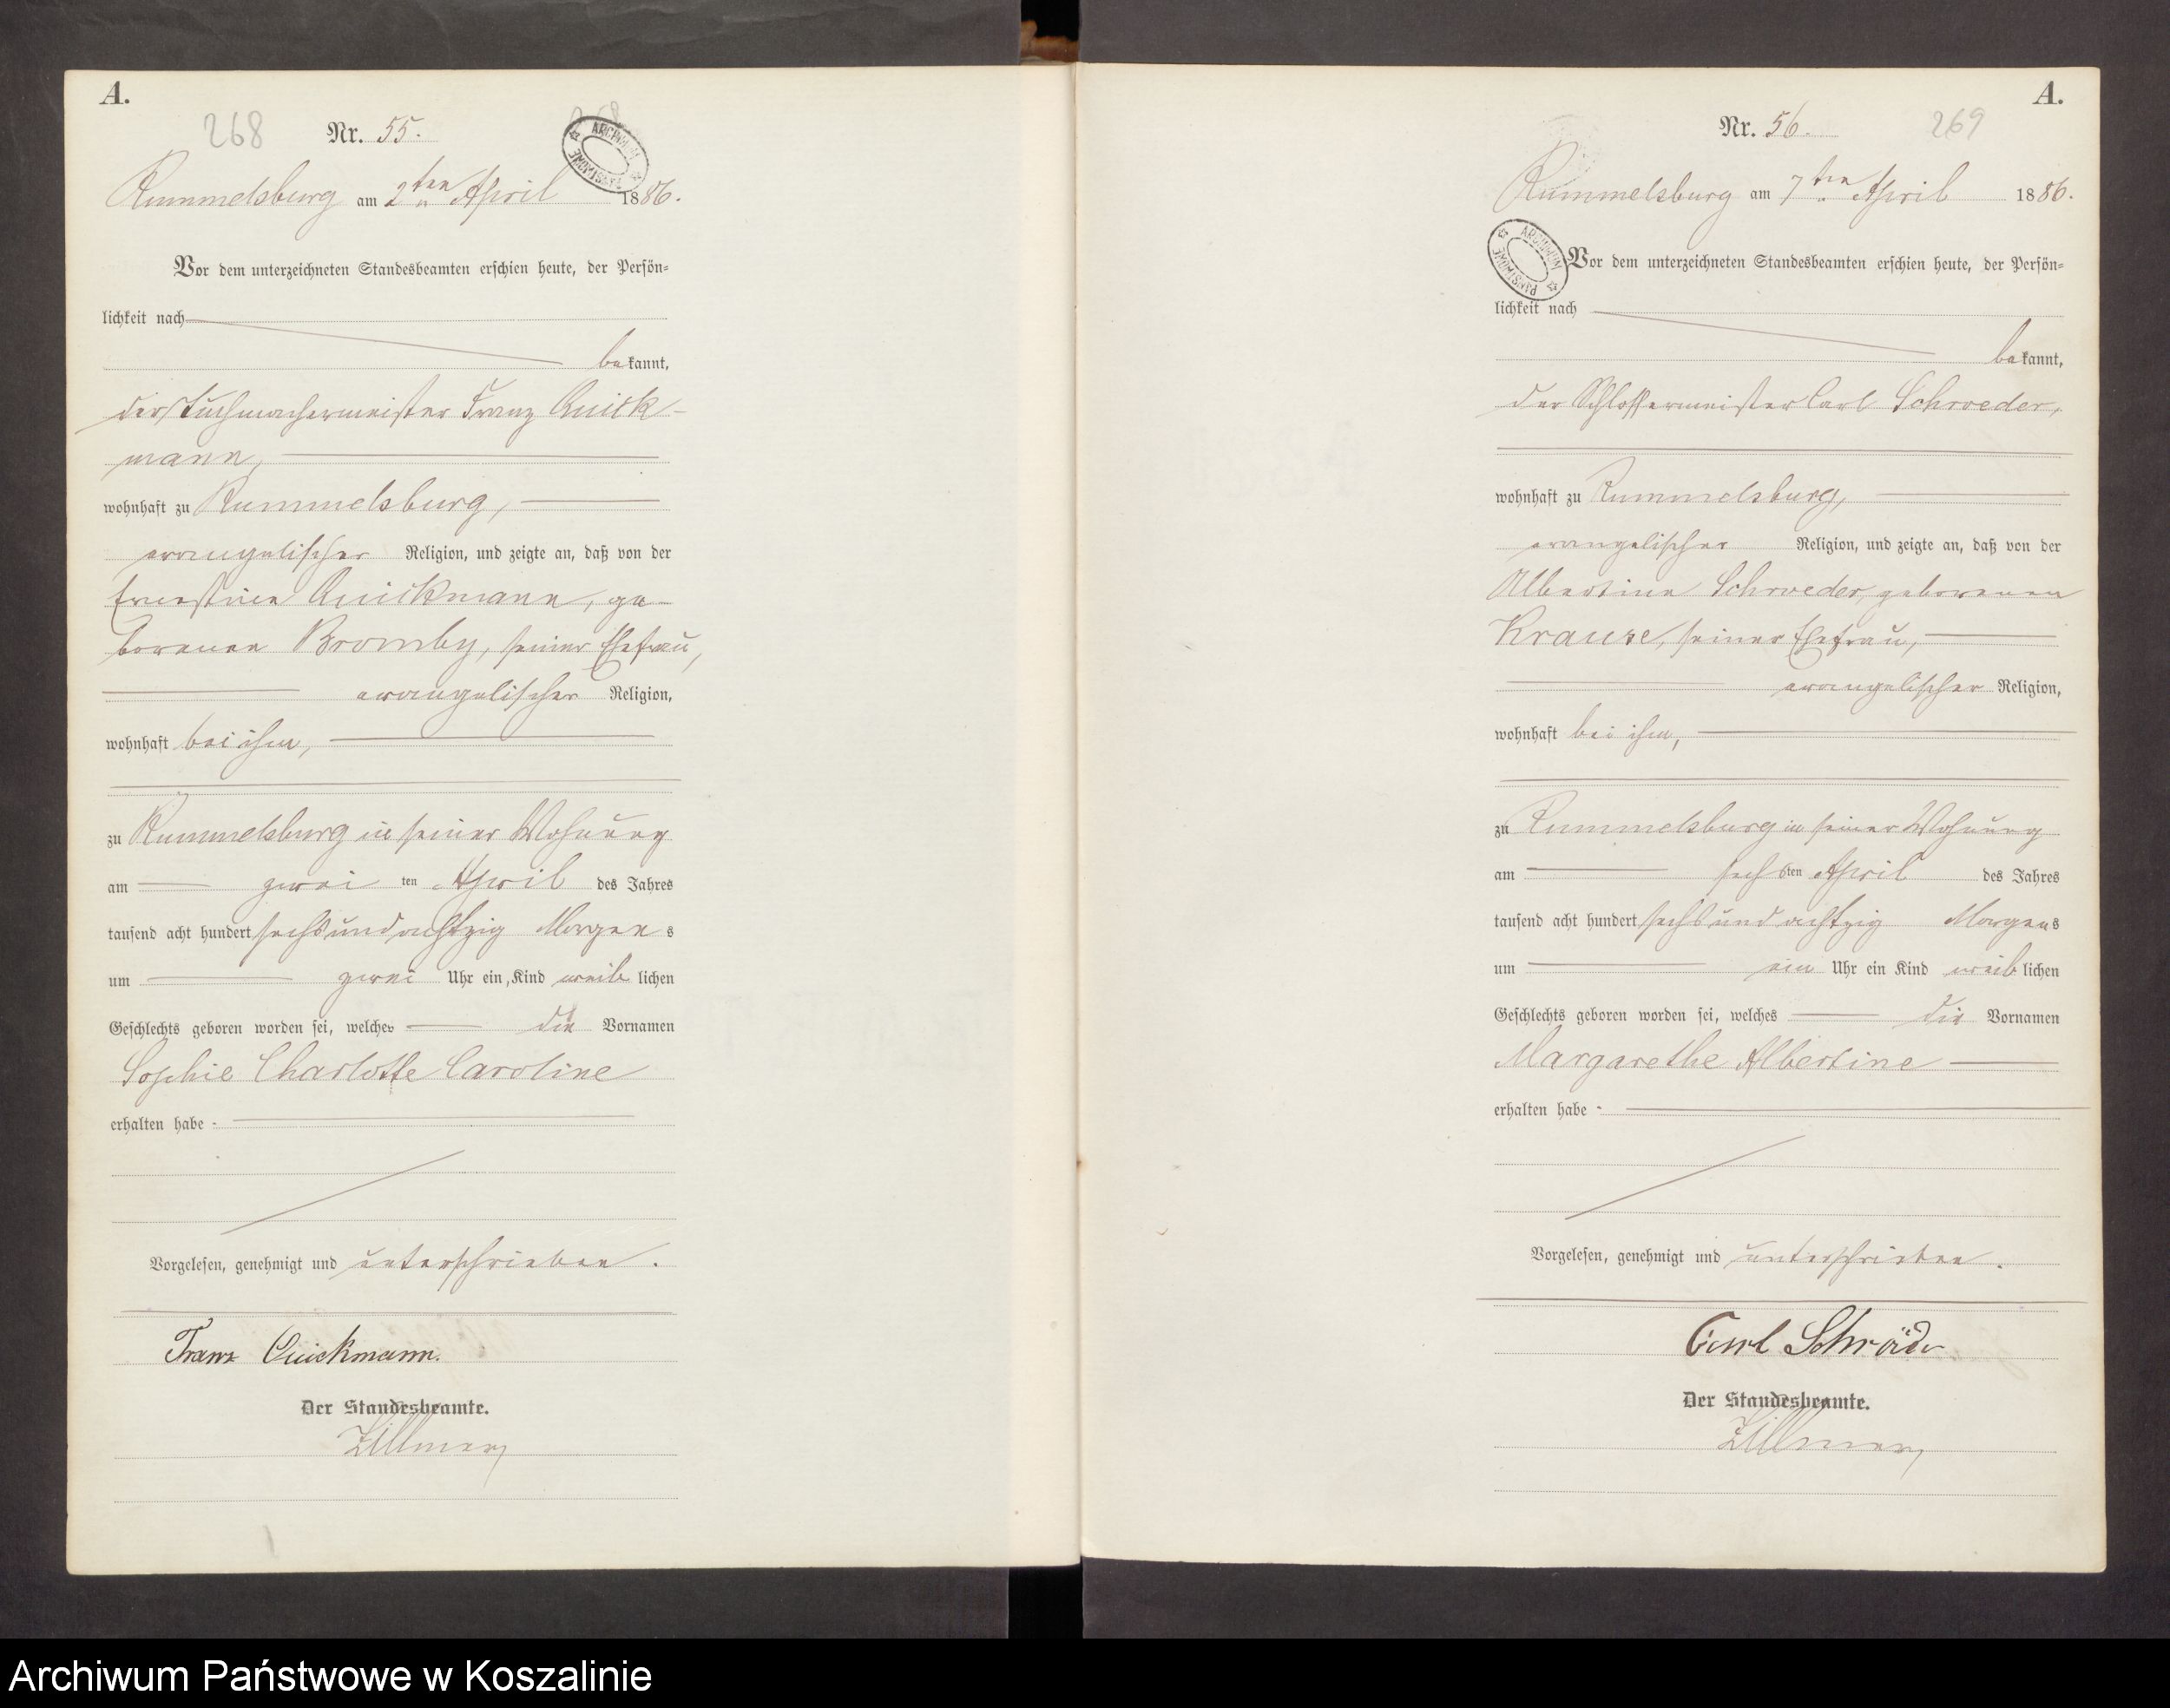 A.
268
Nr. 55.
Rummelsburg am 2ten April 1886.
ARCHIWUM PAŃSTWOWE
Vor dem unterzeichneten Standesbeamten erschien heute, der Persön=
lichkeit nach
bekannt,
der Tuchmachermeister Franz Quick-
mann,
wohnhaft zu Rummelsburg,
evangelischer Religion, und zeigte an, daß von der
Ernestine Quickmann, ge-
borenen Bromby, seiner Ehefrau,
evangelischer Religion,
wohnhaft bei ihm,
zu Rummelsburg in seiner Wohnung
am zwei ten April des Jahres
tausend acht hundert sechsundachtzig Morgens
um zwei Uhr ein Kind weiblichen
Geschlechts geboren worden sei, welches die Vornamen
Sophie Charlotte Caroline
erhalten habe
Vorgelesen, genehmigt und unterschrieben.
Franz Quickmann.
Der Standesbeamte.
Zillmer
A.
Nr. 56.
269
Rummelsburg am 7ten April 1886.
ARCHIWUM PAŃSTWOWE
Vor dem unterzeichneten Standesbeamten erschien heute, der Persön=
lichkeit nach
bekannt,
der Schlossermeister Carl Schroeder,
wohnhaft zu Rummelsburg,
evangelischer Religion, und zeigte an, daß von der
Albertine Schroeder, geborenen
Krause, seiner Ehefrau,
evangelischer Religion,
wohnhaft bei ihm,
zu Rummelsburg in seiner Wohnung
am sechsten April des Jahres
tausend acht hundert sechsundachtzig Morgens
um ein Uhr ein Kind weiblichen
Geschlechts geboren worden sei, welches die Vornamen
Margarethe Albertine
erhalten habe
Vorgelesen, genehmigt und unterschrieben.
Carl Schröder
Der Standesbeamte.
Zillmer
Archiwum Państwowe w Koszalinie